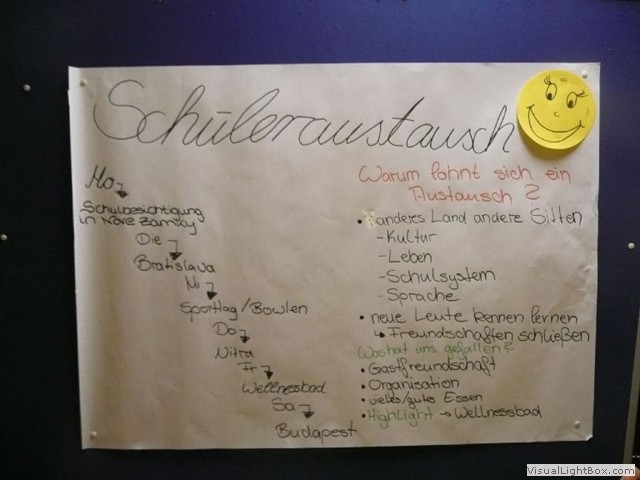 Schüleraustausch
Mo
Schulbesichtigung
in Nové Zámky
Die
Bratislava
Mi
Sporttag/Bowlen
Do
Nitra
Fr
Wellnessbad
Sa
Budapest
Warum lohnt sich ein
Austausch?
• anderes Land andere Sitten
- Kultur
- Leben
- Schulsystem
- Sprache
• neue Leute kennen lernen
↳ Freundschaften schließen
Was hat uns gefallen?
• Gastfreundschaft
• Organisation
• vieles/gutes Essen
• Highlight → Wellnessbad
VisualLightBox.com